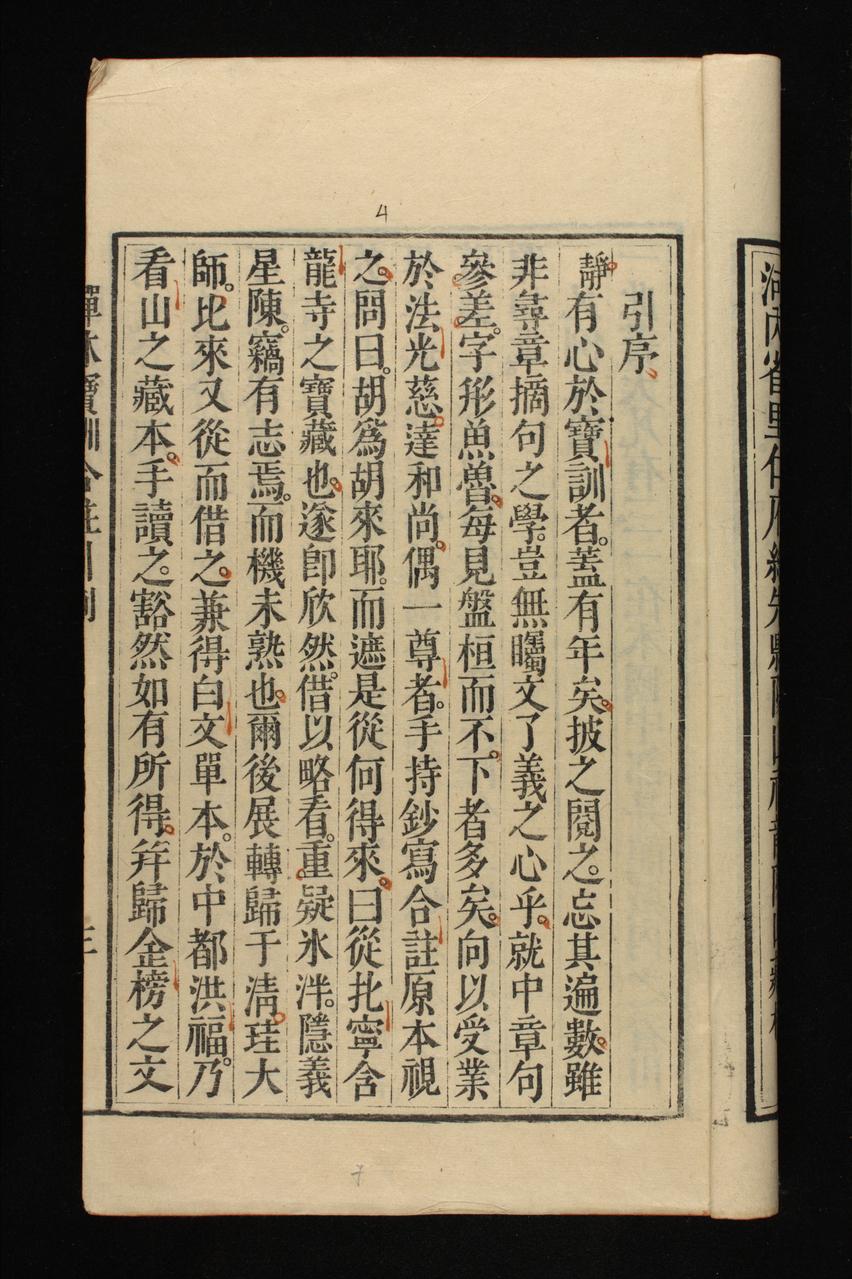 4
引序
靜有心於寶訓者。蓋有年矣。披之閱之。忘其遍數。雖
非尋章摘句之學。豈無矚文了義之心乎。就中章句
參差。字形魚魯。每見盤桓而不下者多矣。向以受業
於法光慈達和尚。偶一尊者。手持鈔寫合註原本視
之。問曰。胡爲胡來耶。而遮是從何得來。曰從北寧含
龍寺之寶藏也。遂卽欣然。借以略看。重疑氷泮。隱義
星陳。竊有志焉。而機未熟也。爾後展轉歸于清珪大
師。比來又從而借之。兼得白文單本。於中都洪福。乃
看山之藏本。手讀之。豁然如有所得。并歸金榜之文
禪林寶訓合註引
三